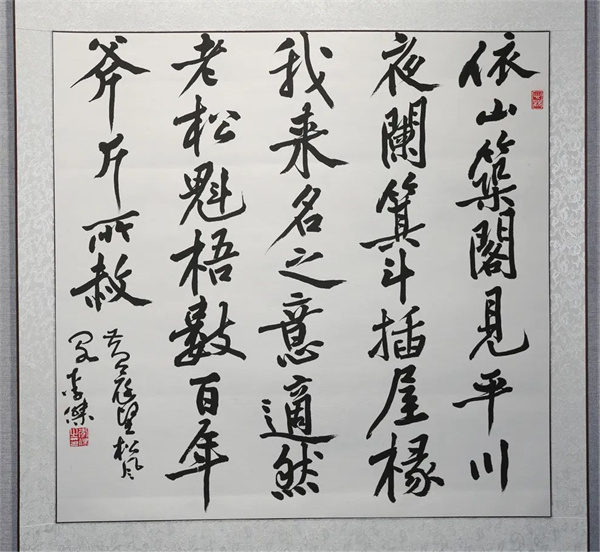 依山築閣見平川
夜闌箕斗插屋椽
我来名之意適然
老松魁梧數百年
斧斤所赦
黄庭堅松风
阁李傑